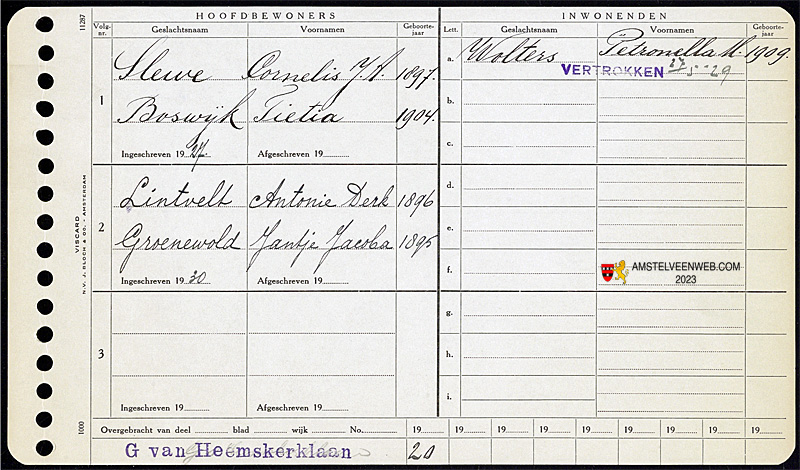 HOOFDBEWONERS
Volg-nr. Geslachtsnaam Voornamen Geboorte-jaar
1 Slewe Cornelis J.A. 1897.
Boswijk Tietia 1904.
Ingeschreven 1927 Afgeschreven 19
2 Lintvelt Antonie Derk 1896
Groenewold Jantje Jacoba 1895
Ingeschreven 1930 Afgeschreven 19
3
Ingeschreven 19 Afgeschreven 19
INWONENDEN
Lett. Geslachtsnaam Voornamen Geboorte-jaar
a. Wolters Petronella M. 1909.
VERTROKKEN 27 5 - 29
b.
c.
d.
e.
f.
AMSTELVEENWEB.COM
2023
g.
h.
i.
Overgebracht van deel blad wijk No. 19 19 19 19 19 19 19 19 19
G van Heemskerklaan 20
11287
VISCARD
N.V. J. BLOCH & CO. - AMSTERDAM
1000